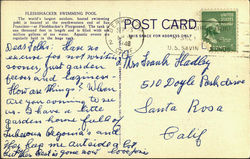 FLEISHHACKER SWIMMING POOL
The world's largest outdoor, heated swimming
pool is located at the southwestern end of
Fleishhacker's Playground. The tank is
one thousand feet in length and is filled with six
million gallons of sea water. Aquatic events are
held in the huge tank.
POST CARD
THIS SPACE FOR ADDRESS ONLY
U.S. SAVIN
1948
Dear Folks: Have no
excuse for not writing
sooner, just garden
fever and laziness -
How are things? When
are you coming to see
us? I have a little
garden house full of
tuberous Begonia's and
they keep me outside a lot
but this heat is gone now
Mrs Frank Hadley
510 Doyle Park drive
Santa Rosa
Calif